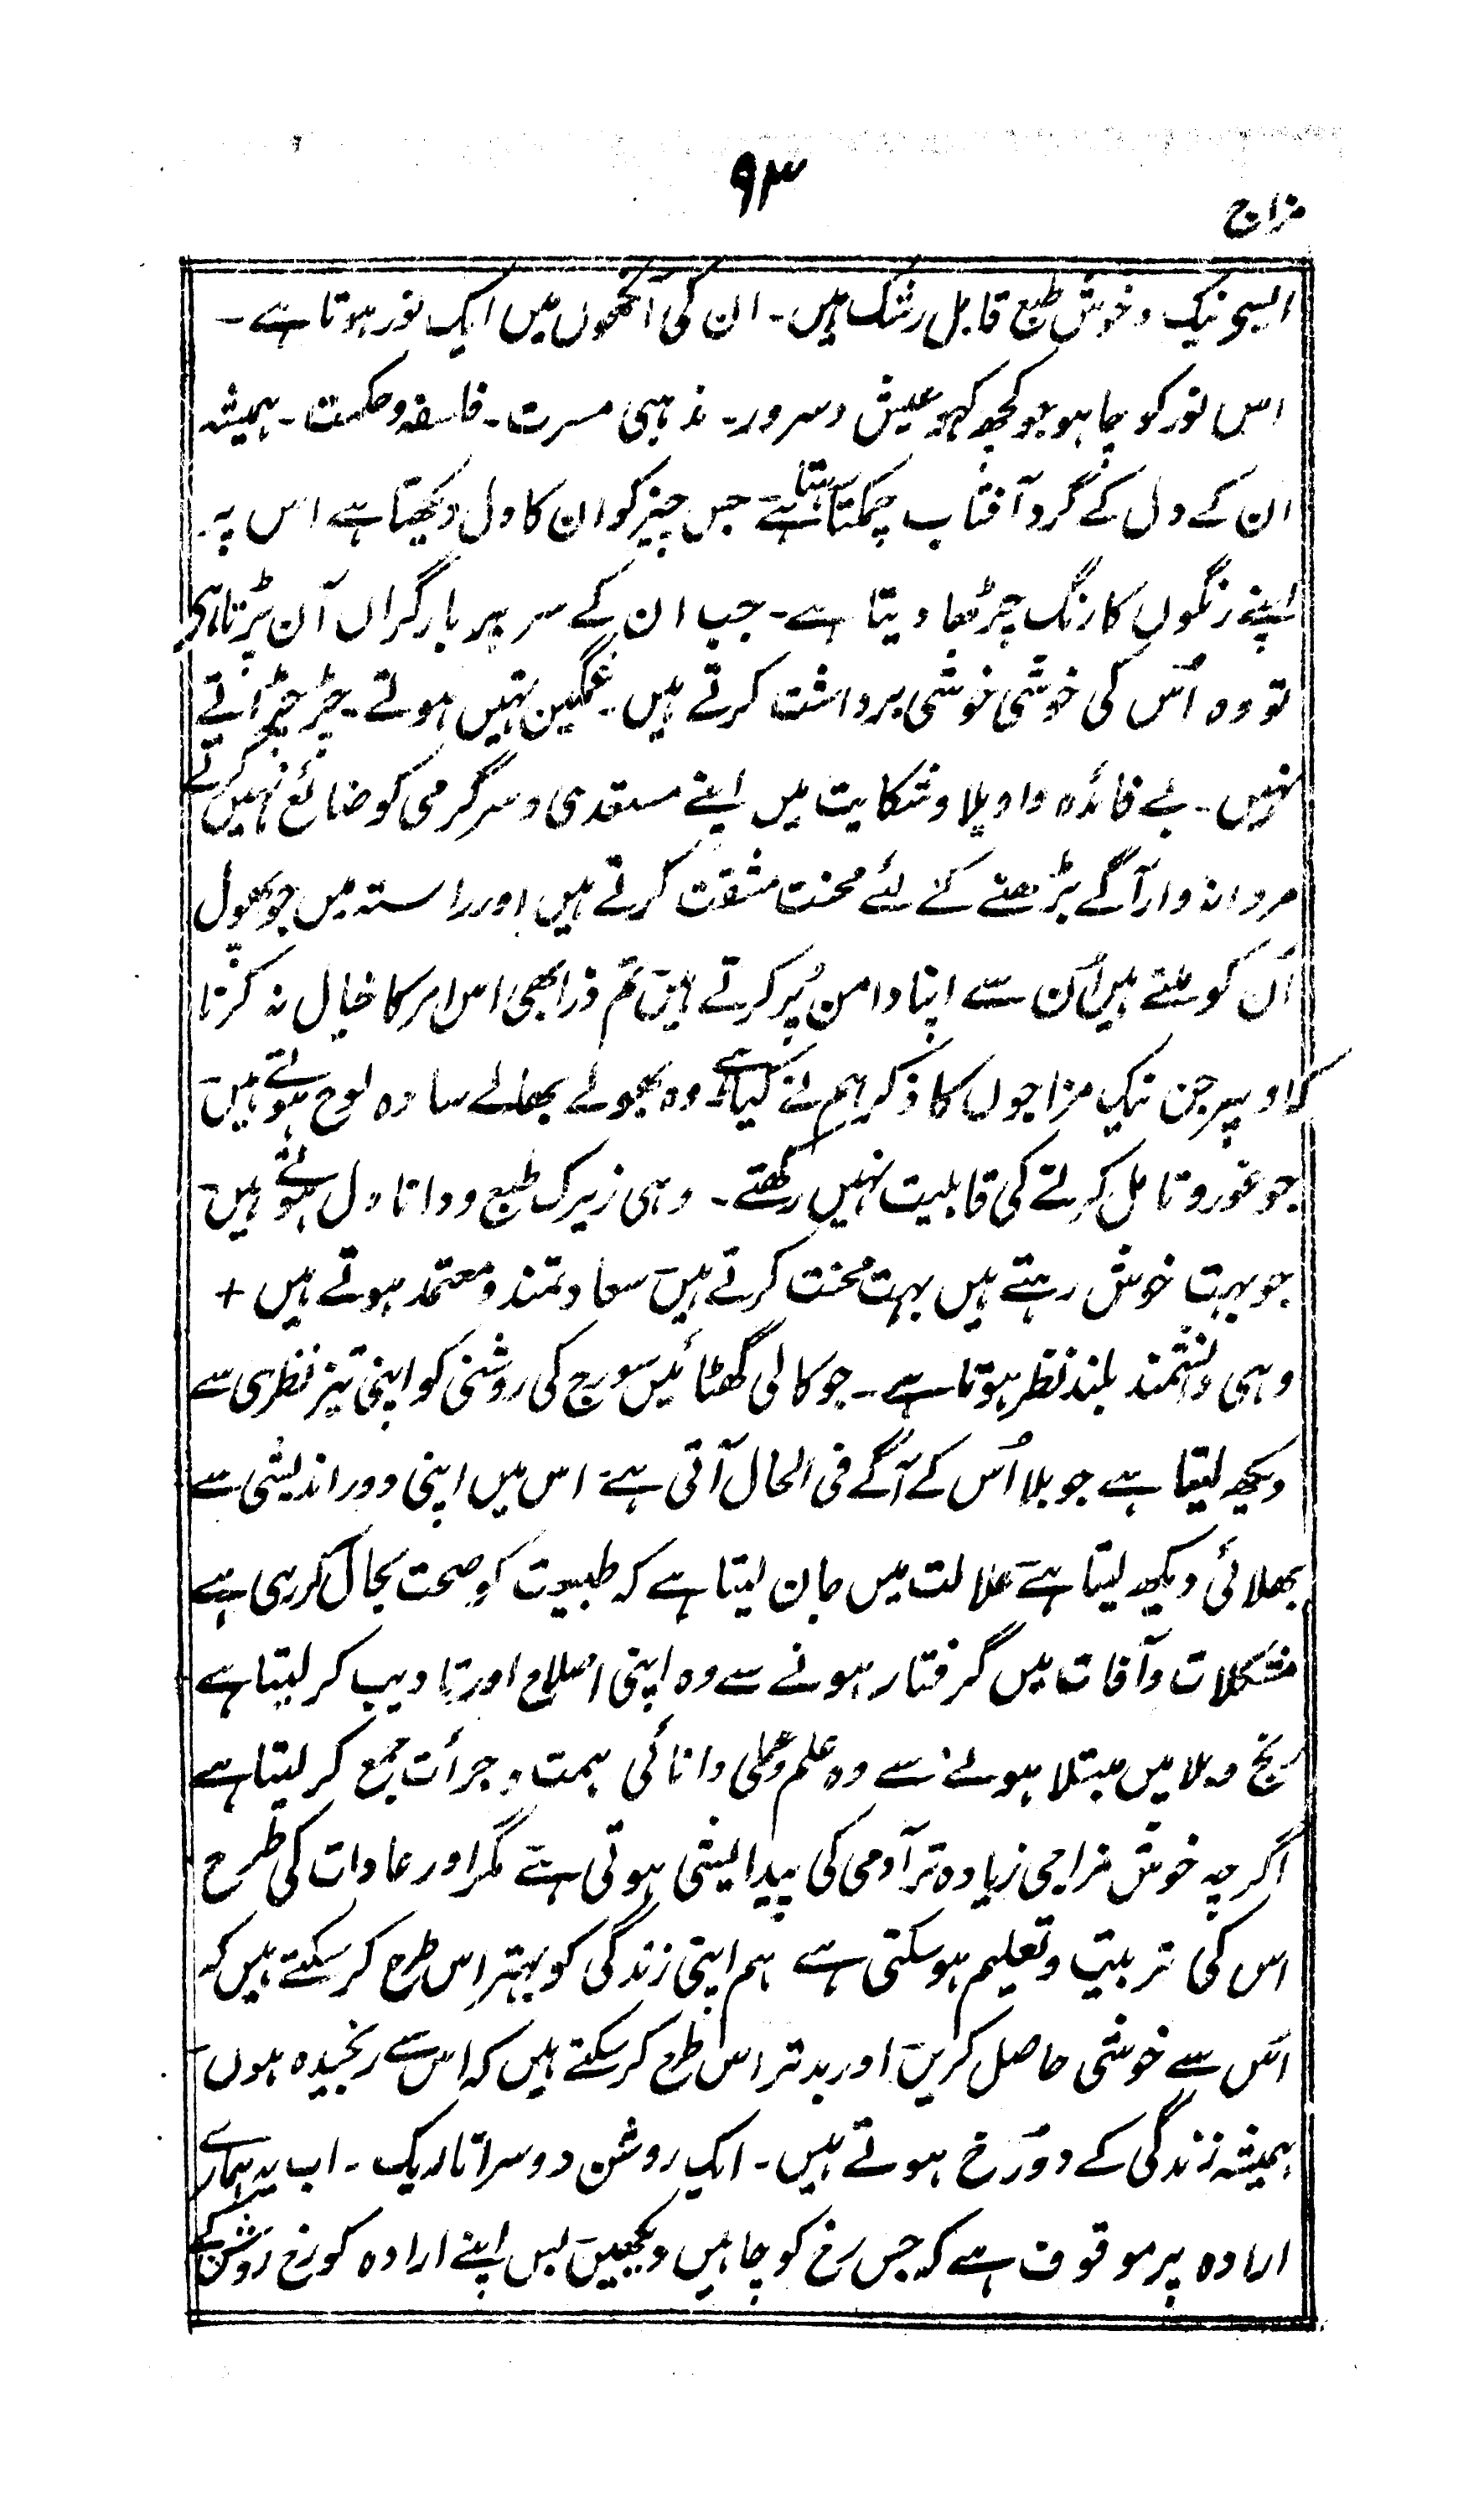 ۹۳
مزاج
ایسے نیک و خوش طبع قابل رشک ہیں۔ ان کی آنکھوں میں ایک نور ہوتا ہے۔
اس نور کو چاہو جو کچھ کہو عیش و سرور۔ مذہبی مسرت۔ فلسفہ و حکمت۔ ہمیشہ
ان کے دل کے گرد آفتاب چمکتا رہتا ہے جس چیز کو ان کا دل دیکھتا ہے اس پر
اپنے رنگوں کا رنگ چڑھا دیتا ہے۔ جب ان کے سر پر بار گراں آن پڑتا ہی
تو وہ اُس کی خوشی خوشی برداشت کرتے ہیں۔ غمگین نہیں ہوتے۔ چڑچڑاتے
نہیں۔ بے فائدہ واویلا و شکایت میں اپنے مستعدی و سرگرمی کو ضائع نہیں کرتے
مردانہ وار آگے بڑھنے کے لئے محنت مشقت کرتے ہیں اور راستہ میں جو پھول
اُن کو ملتے ہیں اُن سے اپنا دامن پُر کرتے ہیں تم ذرا بھی اس امر کا خیال نہ کرنا
کہ اوپر جن نیک مزاجوں کا ذکر ہم نے کیا ہے وہ بھولے بھالے سادہ لوح ہوتے ہیں
جو غور و تامل کرنے کی قابلیت نہیں رکھتے۔ وہی زیرک طبع و دانا دل ہوتے ہیں
جو بہت خوش رہتے ہیں بہت محنت کرتے ہیں سعادتمند و معتمد ہوتے ہیں +
وہی دانشمند بلند نظر ہوتا ہے۔ جو کالی گھٹا میں سورج کی روشنی کو اپنی تیز نظری سے
دیکھ لیتا ہے جو بلا اُس کے آگے فی الحال آتی ہے اس میں اپنی دور اندیشی سے
بھلائی دیکھ لیتا ہے علالت میں جان لیتا ہے کہ طبیعت کو صحت بحال کر رہی ہے
مشکلات و آفات میں گرفتار ہونے سے وہ اپنی اصلاح اور تادیب کر لیتا ہے
رنج و بلا میں مبتلا ہونے سے وہ علم و عملی دانائی ہمت و جرأت جمع کر لیتا ہے
اگرچہ خوش مزاجی زیادہ تر آدمی کی پیدایشی ہوتی ہے مگر اور عادات کی طرح
اس کی تربیت و تعلیم ہو سکتی ہے ہم اپنی زندگی کو بہتر اس طرح کر سکتے ہیں کہ
اس سے خوشی حاصل کریں اور بدتر اس طرح کر سکتے ہیں کہ اس سے رنجیدہ ہوں
ہمیشہ زندگی کے دو رُخ ہوتے ہیں۔ ایک روشن دوسرا تاریک۔ اب یہ ہمارے
ارادہ پر موقوف ہے کہ جس رخ کو چاہیں دیکھیں بس اپنے ارادہ کو رخ روشن کے